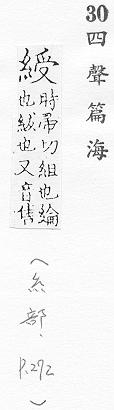 30 四聲篇海
綬
時帚切組也綸
也紱也又音售
(糸部, P.292)